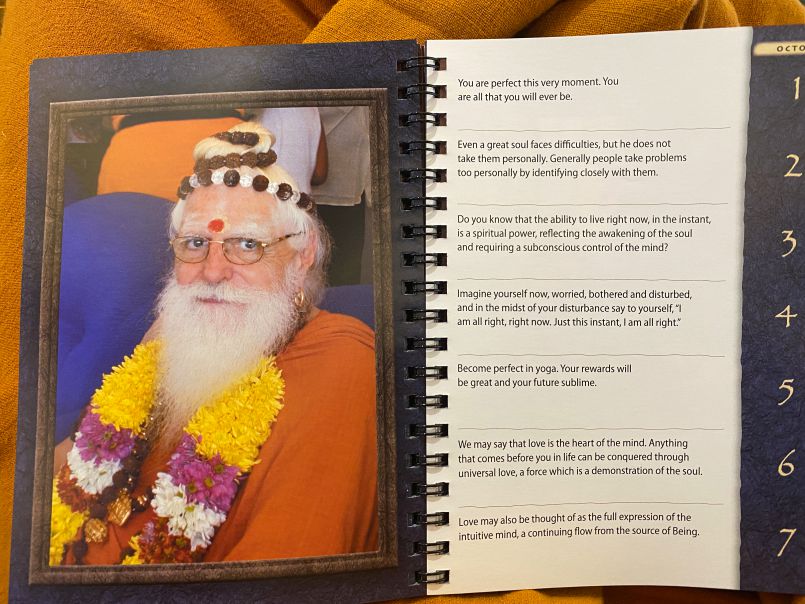 OCTO
1
You are perfect this very moment. You
are all that you will ever be.
2
Even a great soul faces difficulties, but he does not
take them personally. Generally people take problems
too personally by identifying closely with them.
3
Do you know that the ability to live right now, in the instant,
is a spiritual power, reflecting the awakening of the soul
and requiring a subconscious control of the mind?
4
Imagine yourself now, worried, bothered and disturbed,
and in the midst of your disturbance say to yourself, “I
am all right, right now. Just this instant, I am all right.”
5
Become perfect in yoga. Your rewards will
be great and your future sublime.
6
We may say that love is the heart of the mind. Anything
that comes before you in life can be conquered through
universal love, a force which is a demonstration of the soul.
7
Love may also be thought of as the full expression of the
intuitive mind, a continuing flow from the source of Being.